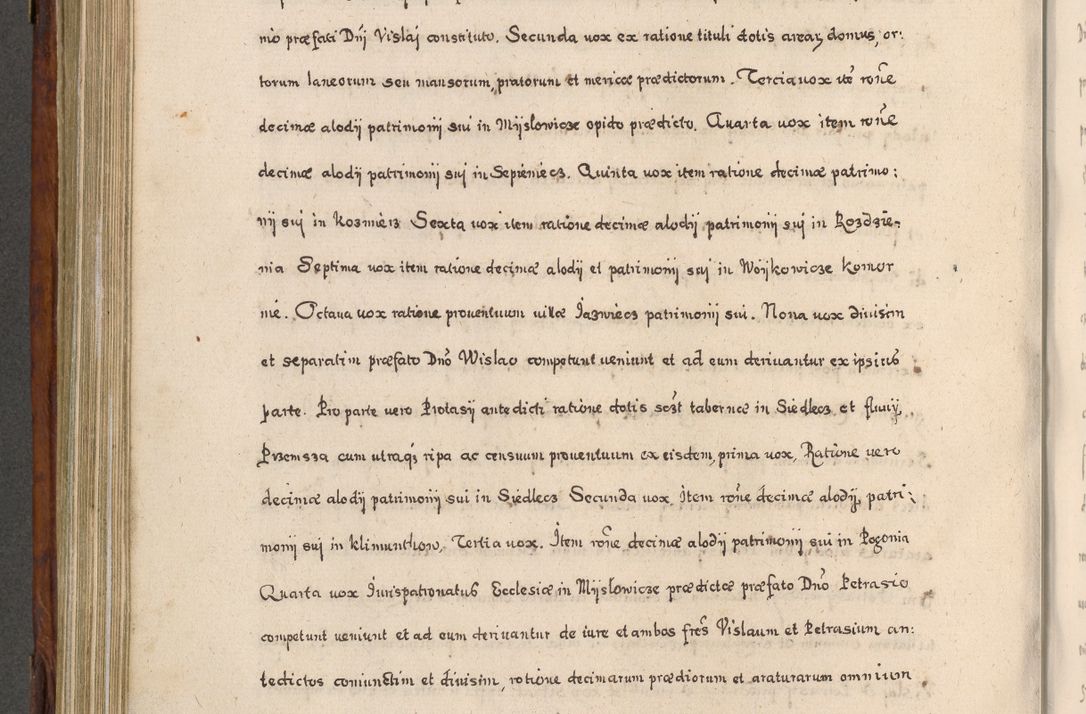 mo præfati Dnj Vislaj constituto. Secunda uox ex ratione tituli dotis areaȝ domus, or:
torum laneorum seu mansorum, pratorum et mericæ prædictorum. Tercia uox ite rone
decimæ alodij patrimonij sui in Mijslowicze opido prædicto. Quarta uox item rone
decimæ alodij patrimonij suj in Sepieniecz. Quinta uox item ratione decimæ patrimo:
nij suj in Kozmierz Sexta uox item ratione decimæ alodij patrimonij suj in Rozdzie-
nia Septima uox item ratione decimæ alodij et patrimonij suj in Woijkowicze komor
nie. Octaua uox ratione prouentuum uillæ Jazwiecz patrimonij sui. Nona uox diuisim
et separatim præfato Dno Wislao competunt ueniunt et ad eum deriuantur ex ipsius
parte. Pro parte uero Protasij antedicti ratione dotis sczt tabernæ in Siedlecz et fluuij
Przemsza cum utraqȝ ripa ac censuum prouentuum ex eisdem, prima uox, Ratione uero
decimæ alodij patrimonij sui in Siedlecz Secunda uox. Item rone decimæ alodij, patri:
monij suj in klimunthow. Tertia uox. Item rone decimæ alodij patrimonij sui in Pogonia
Quarta uox Jurispatronatus Ecclesiæ in Mijslowicze prædictæ præfato Dno Petrasio
competunt ueniunt et ad eum deriuantur de iure et ambos fres Vislaum et Petrasium an:
tedictos coniunctim et diuisim, ratione decimarum prædiorum et araturarum omnium